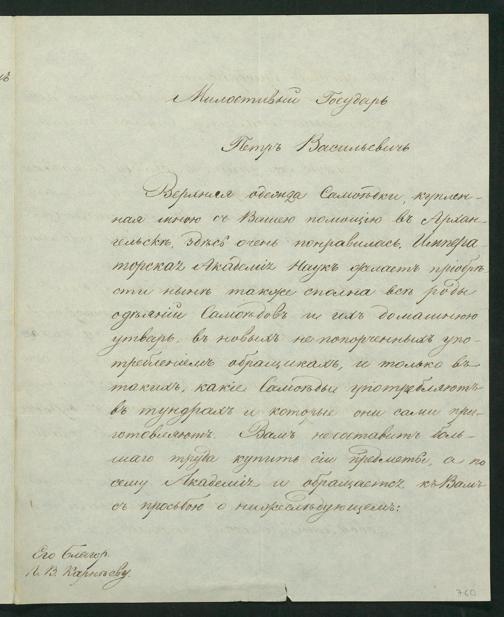 Милостивый Государь
Петръ Васильевичь
Верхняя одежда Самоѣдки, куплен-
ная мною съ Вашею помощію въ Архан-
гельскѣ, здѣсь очень понравилась. Импера-
торская Академія Наукъ желаетъ пріобрѣ-
сти нынѣ также сполна всѣ роды
одѣяній Самоѣдовъ и ихъ домашнюю
утварь, въ новыхъ не попорченныхъ упо-
требленіемъ образчикахъ, и только въ
такихъ, какіе Самоѣды употребляютъ
въ тундрахъ и которые они сами при-
готовляютъ. Вамъ несоставитъ боль-
шаго труда купить сіи предметы, а по
сему Академія и обращается къ Вамъ
съ просьбою о нижеслѣдующемъ:
Его Благор.
П. В.
760